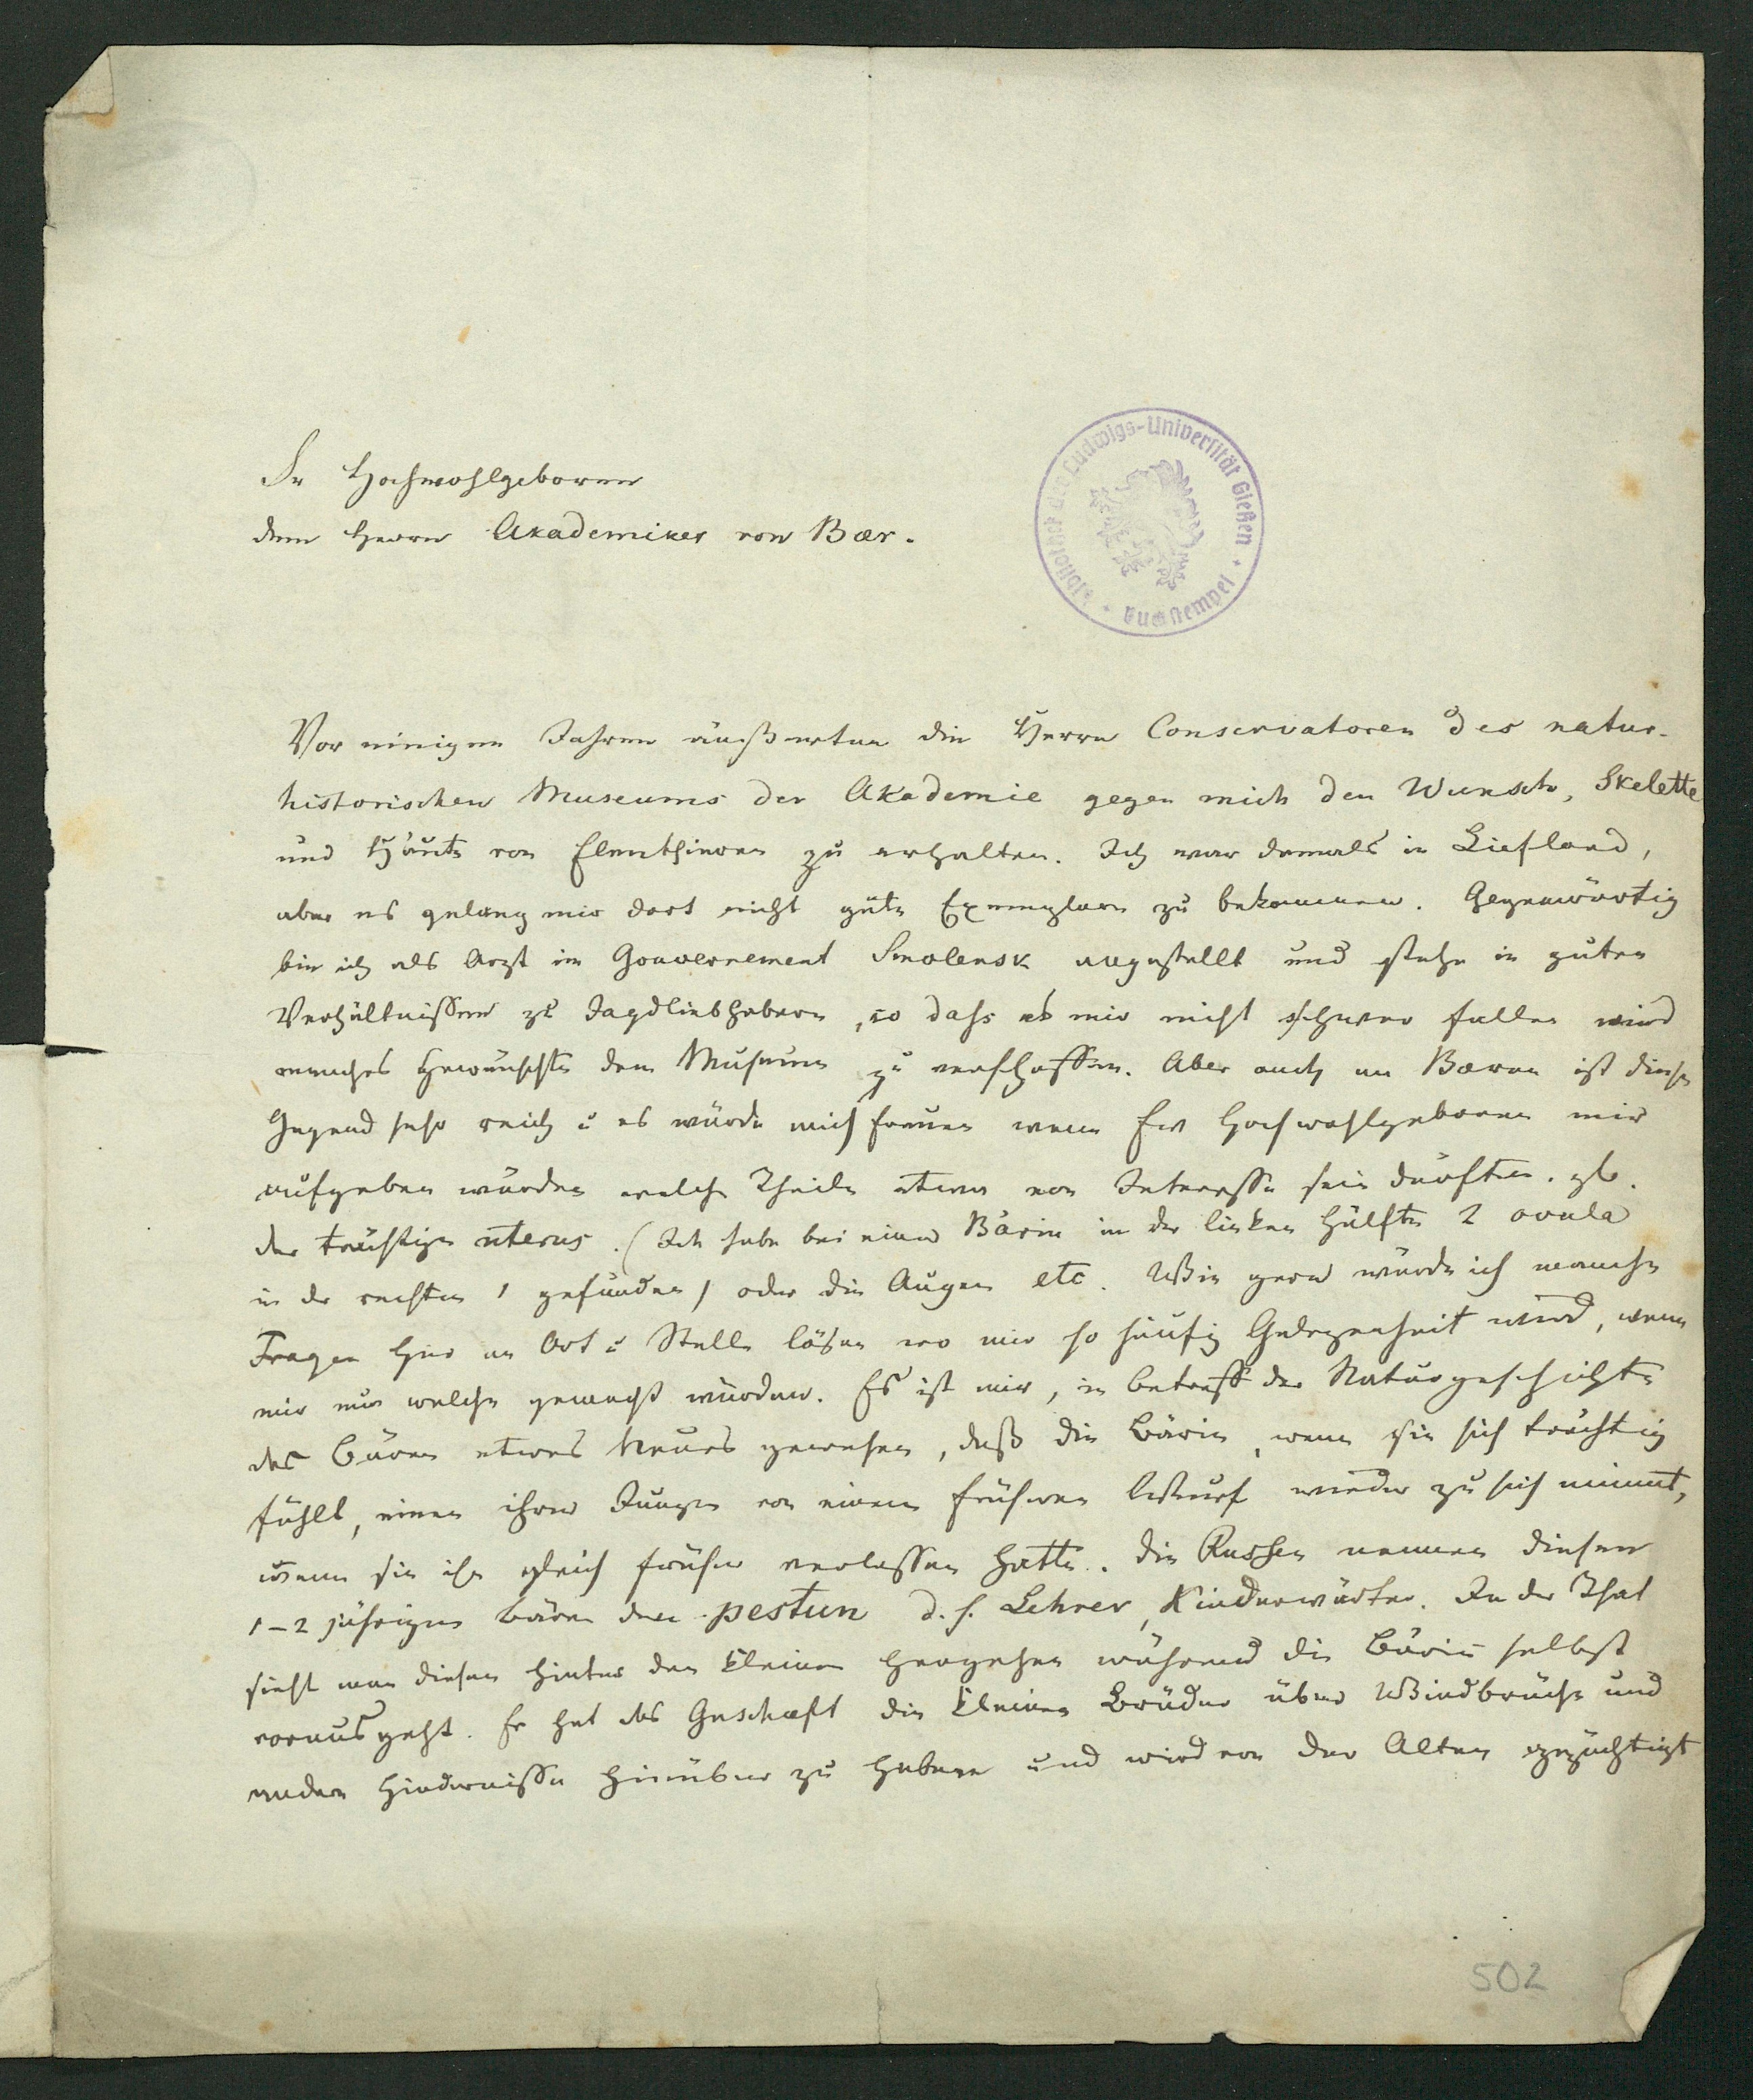 Sr Hochwohlgeboren
dem Herrn Akademiker von Baer.
Bibliothek der Ludwigs-Universität Gießen
Vor einigen Jahren äußerten die Herrn Conservatoren des natur-
historischen Museums der Akademie gegen mich den Wunsch, Skelette
und Häute von Elenthieren zu erhalten. Ich war damals in Liefland,
aber es gelang mir dort nicht gute Exemplare zu bekommen. Gegenwärtig
bin ich als Arzt im Gouvernement Smolensk angestellt und stehe in guten
Verhältnissen zu Jagdliebhabern, so dass es mir nicht schwer fallen wird
manches Gewünschte dem Museum zu verschaffen. Aber auch an Baeren ist diese
Gegend sehr reich u es würde mich freuen wenn Ew Hochwohlgeboren mir
aufgeben würden welche Theile etwa von Interesse sein dürften. zb.
der trächtige uterus. (Ich habe bei einer Bärin in der linken Hälfte 2 ovula
in der rechten 1 gefunden) oder die Augen etc. Wie gern würde ich manche
Fragen hier an Ort u Stelle lösen wo mir so häufig Gelegenheit wird, wenn
mir nur welche gemacht würden. Es ist mir, in betreff der Naturgeschichte
des Bären etwas Neues gewesen, daß die Bärin, wenn sie sich trächtig
fühlt, einen ihrer Jungen von einem früheren Wurf wieder zu sich nimmt,
wenn sie ihn gleich früher verlassen hatte. Die Russen nennen diesen
1-2 jährigen Bären den pestun d. h. Lehrer, Kinderwärter. In der That
sieht man diesen hinter den kleinen hergehen während die Bärin selbst
voraus geht. Er hat das Geschaeft die kleinen Brüder über Windbrüche und
andere Hindernisse hinüber zu heben und wird von der Alten gezüchtigt
502